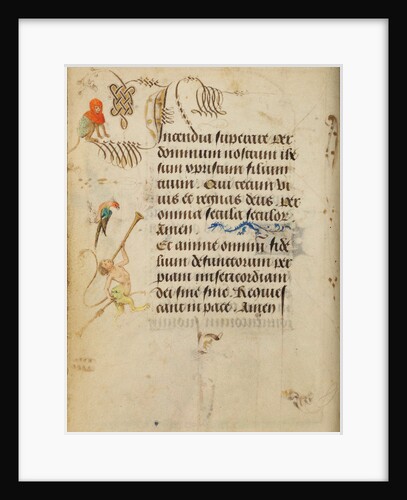 Incendia superare per
dominum nostrum ihe
sum xpristum filium
tuum. Qui tecum vi
uis et regnas deus per
omnia secula seculor
Amen.
Et anime omnium fide
lium defunctorum per
piam misericordiam
dei sine fine Requies
cant in pace. Amen